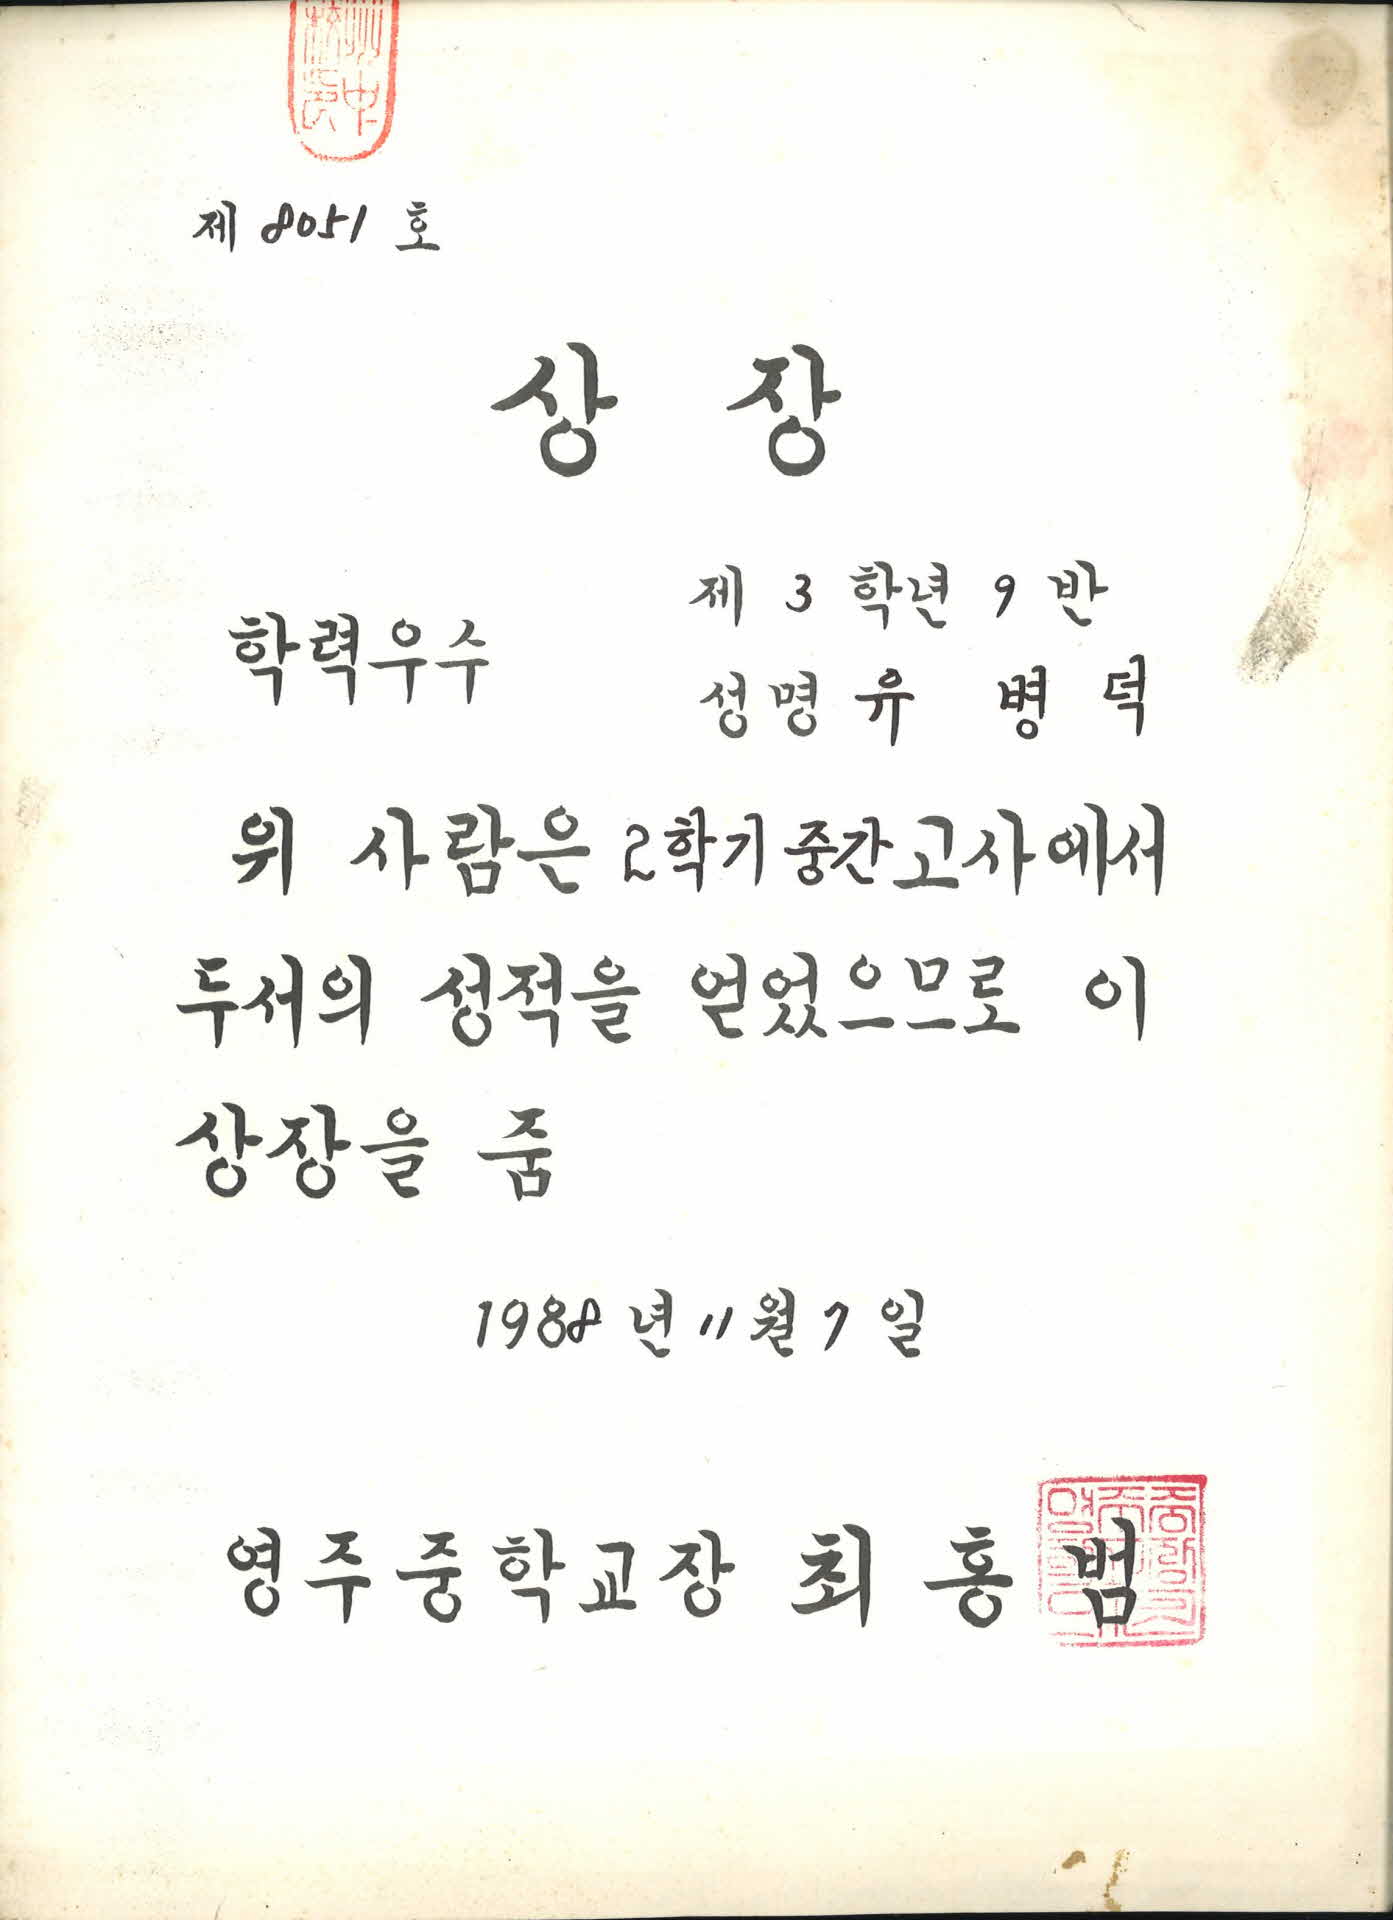 제 8051 호
상 장
학력우수
제 3 학년 9 반
성명 유 병 덕
위 사람은 2학기 중간고사에서
두서의 성적을 얻었으므로 이
상장을 줌
1988년 11월 7일
영주중학교장 최 홍 범